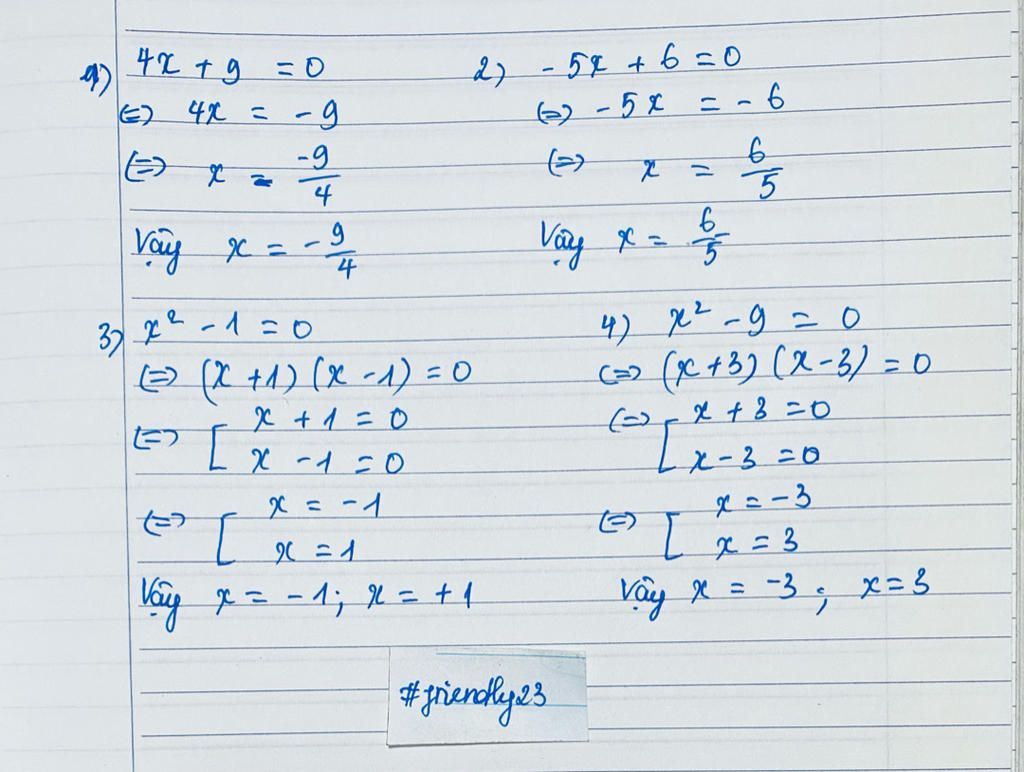 1) 4x + 9 = 0
⇔ 4x = -9
⇔ x = -9/4
Vậy x = -9/4
2) -5x + 6 = 0
⇔ -5x = -6
⇔ x = 6/5
Vậy x = 6/5
3) x² - 1 = 0
⇔ (x + 1) (x - 1) = 0
⇔ [ x + 1 = 0
x - 1 = 0
⇔ [ x = -1
x = 1
Vậy x = -1; x = +1
4) x² - 9 = 0
⇔ (x + 3) (x - 3) = 0
⇔ [ x + 3 = 0
x - 3 = 0
⇔ [ x = -3
x = 3
Vậy x = -3; x = 3
#friendly23